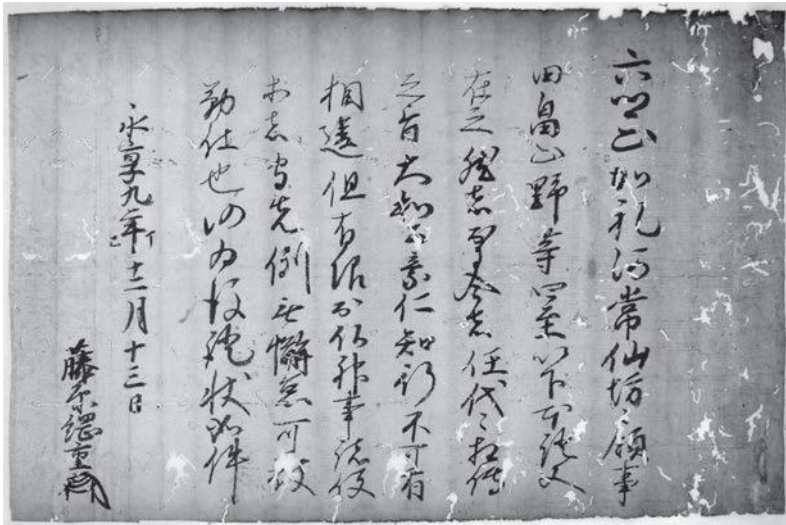 六郷山加礼河常仙坊々領事
田畠山野等四至以下本證文
在之然者任代々相傳
之旨豪仁知行不可有
相違但有限御仏神事諸役
等者守先例無懈怠可致
勤仕也仍為後證状如件
永享九年丁巳十二月十三日
藤原綱重